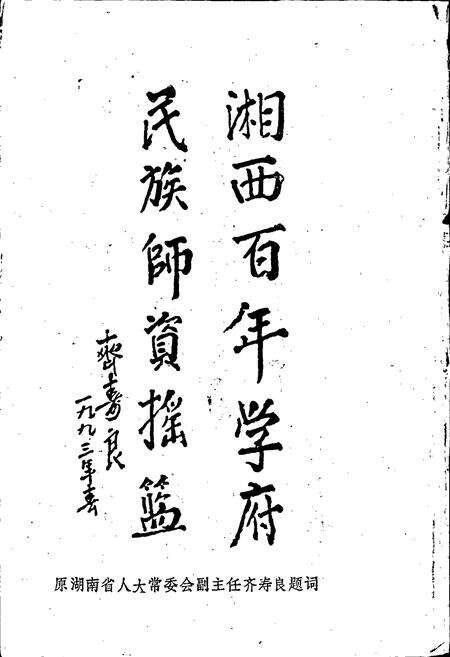 湘西百年学府
民族師資摇籃
齊寿良
一九九三年春
原湖南省人大常委会副主任齐寿良题词